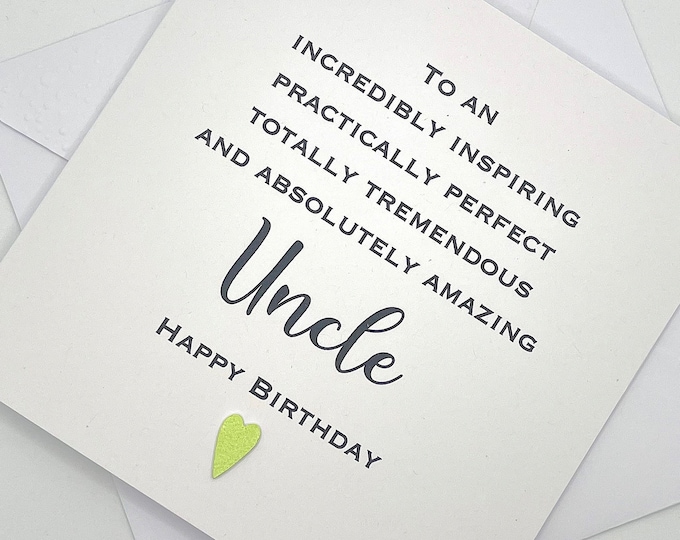 To an
incredibly inspiring
practically perfect
totally tremendous
and absolutely amazing
Uncle
Happy Birthday